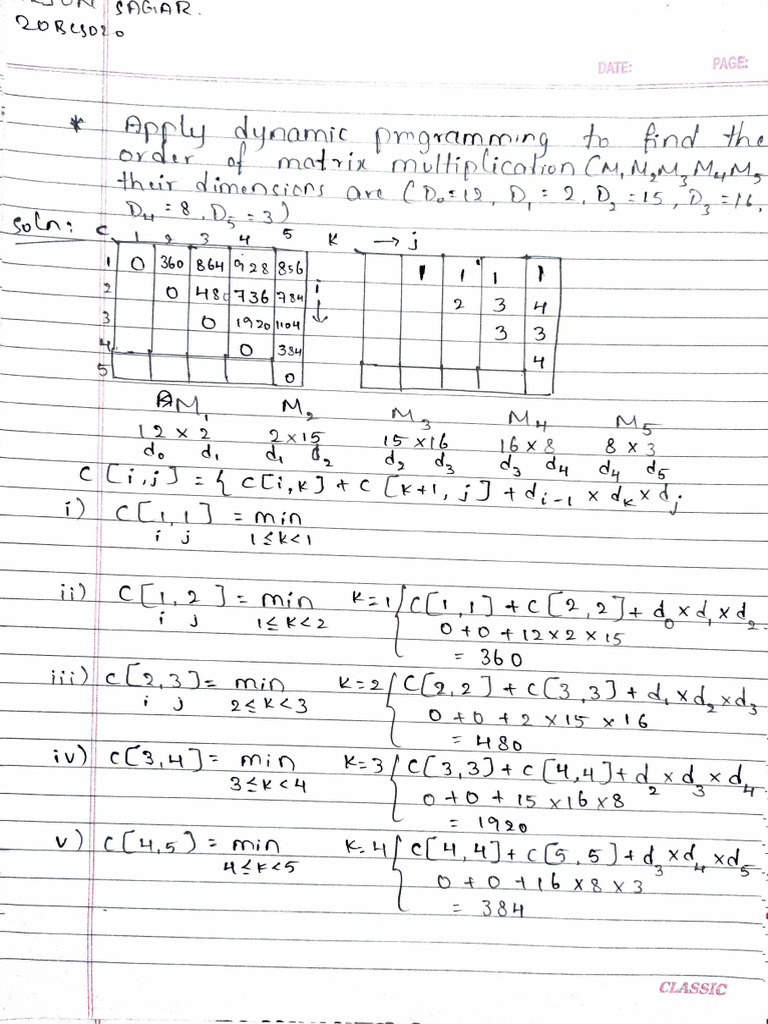 SAGAR.
20BCS020
DATE: PAGE:
* Apply dynamic programming to find the
order of matrix multiplication (M₁ M₂ M₃ M₄ M₅
their dimensions are (D₀=12, D₁ = 2, D₂ = 15, D₃ = 16,
D₄ = 8, D₅ = 3)
Soln: C 1 2 3 4 5 K → j
1 0 360 864 928 856 i 1 1 1 1
2 0 480 736 784 ↓ 2 3 4
3 0 1920 1104 3 3
4 0 384 4
5 0
M₁ M₂ M₃ M₄ M₅
12 × 2 2 × 15 15 × 16 16 × 8 8 × 3
d₀ d₁ d₁ d₂ d₂ d₃ d₃ d₄ d₄ d₅
C [i,j] = { C[i,K] + C [K+1, j] + di-1 × dK × dj
i) C[1,1] = min
i j 1≤K<1
ii) C[1,2] = min K=1 { C[1,1] + C[2,2] + d₀ × d₁ × d₂
i j 1≤K<2 0 + 0 + 12 × 2 × 15
= 360
iii) C[2,3] = min K=2 { C[2,2] + C[3,3] + d₁ × d₂ × d₃
i j 2≤K<3 0 + 0 + 2 × 15 × 16
= 480
iv) C[3,4] = min K=3 { C[3,3] + C[4,4] + d₂ × d₃ × d₄
3≤K<4 0 + 0 + 15 × 16 × 8
= 1920
v) C[4,5) = min K=4 { C[4,4] + C[5,5] + d₃ × d₄ × d₅
4≤K<5 0 + 0 + 16 × 8 × 3
= 384
CLASSIC